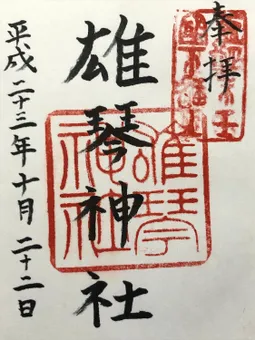 奉拝
雄琴神社
雄琴神社
平成二十三年十月二十二日